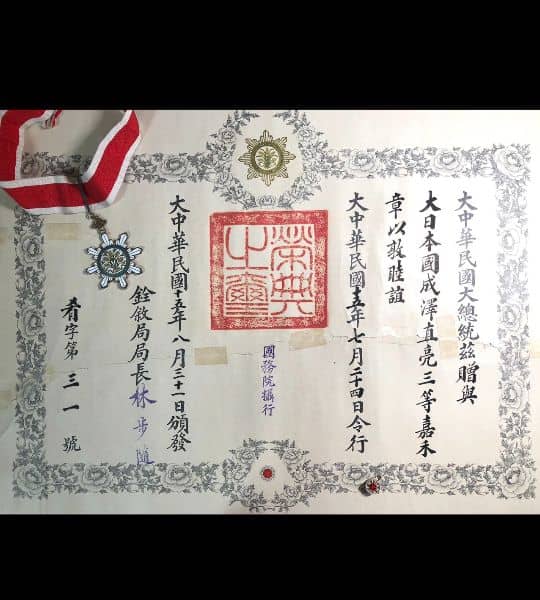 大中華民國大總統茲贈與
大日本國成澤直亮三等嘉禾
章以敦睦誼
大中華民國十五年七月二十四日令行
榮典之璽
國務院攝行
大中華民國十五年八月三十一日頒發
銓敘局局長林步隨
肴字第三一號